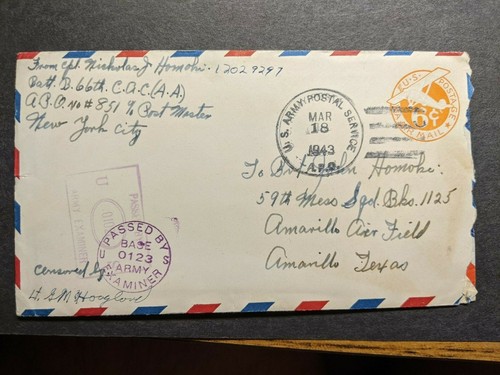 From Cpl. Nicholas J Homoki - 12029297
Batt. D. 66th. C.A.C. (A.A.)
A.P.O. no # 851 % Post Master
New York City
U.S. ARMY POSTAL SERVICE
MAR
18
1943
A.P.O.
U.S. POSTAGE
6¢
AIR MAIL
To Pvt. John Homoki
59th Mess Sqd. Bks. 1125
Amarillo Air Field
Amarillo Texas
PASSED BY
U S
BASE
0123
ARMY
EXAMINER
Censored by
Lt.